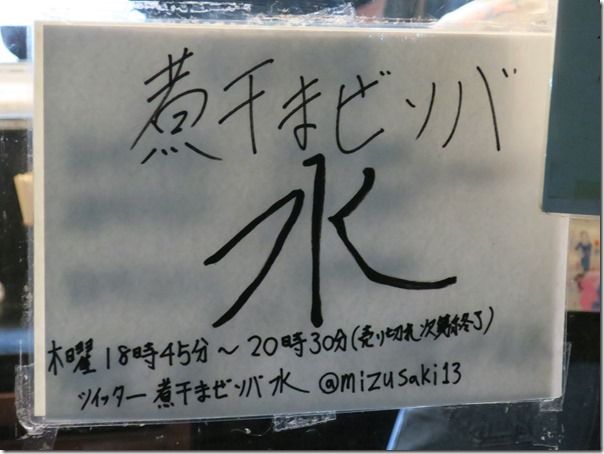 煮干まぜソバ
水
木曜 18時45分～20時30分(売り切れ次第終了)
ツイッター 煮干まぜソバ 水 @mizusaki13